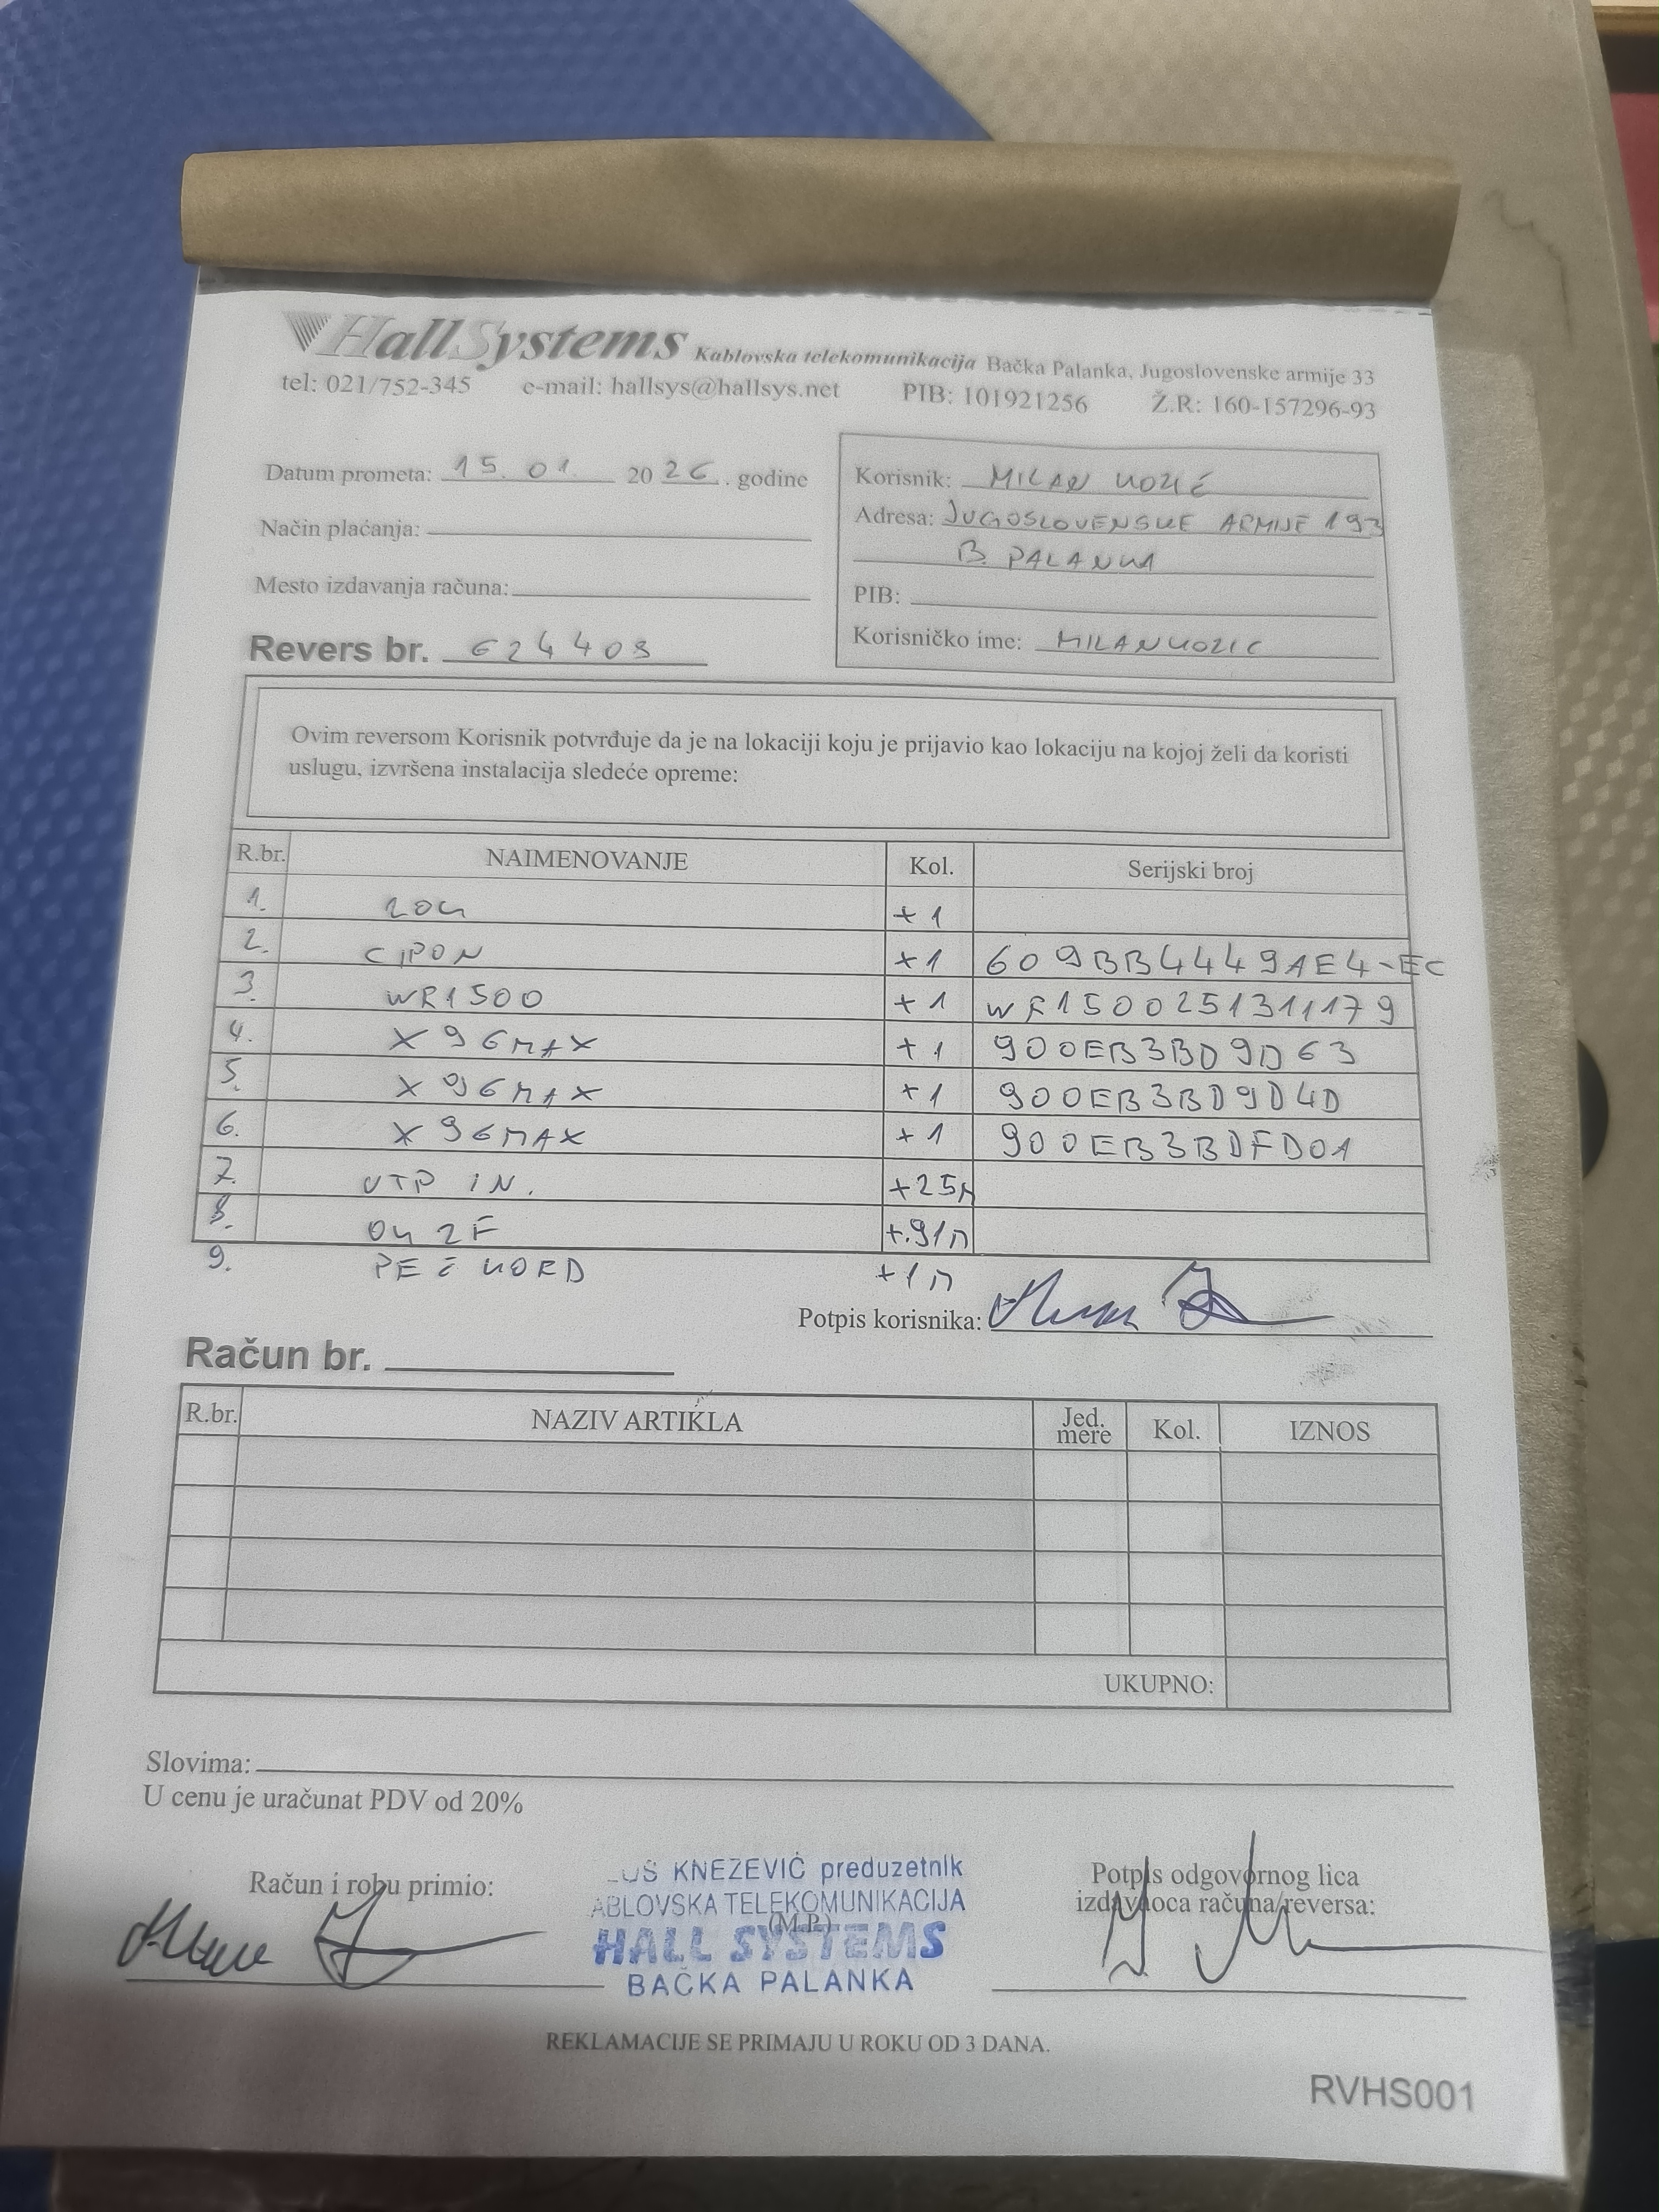 HallSystems Kablovska telekomunikacija Bačka Palanka, Jugoslovenske armije 33
tel: 021/752-345 e-mail: hallsys@hallsys.net PIB: 101921256 Ž.R: 160-157296-93
Datum prometa: 15. 01. 2026. godine
Način plaćanja:
Mesto izdavanja računa:
Revers br. 624409
Korisnik: MILAN KOZIĆ
Adresa: JUGOSLOVENSKE ARMIJE 193
B. PALANKA
PIB:
Korisničko ime: MILANKOZIC
Ovim reversom Korisnik potvrđuje da je na lokaciji koju je prijavio kao lokaciju na kojoj želi da koristi
uslugu, izvršena instalacija sledeće opreme:
R.br. NAIMENOVANJE Kol. Serijski broj
1. ZOK +1
2. CIPON +1 609BB4449AE4-EC
3. WR1500 +1 WR150025131179
4. X96MAX +1 900EB3BD9D63
5. X96MAX +1 900EB3BD9D4D
6. X96MAX +1 900EB3BDFD01
7. UTP IN. +25M
8. OK 2F +91M
9. PEČ KORD +1M
Potpis korisnika:
Račun br.
R.br. NAZIV ARTIKLA Jed. mere Kol. IZNOS
UKUPNO:
Slovima:
U cenu je uračunat PDV od 20%
Račun i robu primio:
KNEZEVIĆ preduzetnik
ABLOVSKA TELEKOMUNIKACIJA
(M.P.)
HALL SYSTEMS
BAČKA PALANKA
Potpis odgovornog lica
izdavaoca računa/reversa:
REKLAMACIJE SE PRIMAJU U ROKU OD 3 DANA.
RVHS001